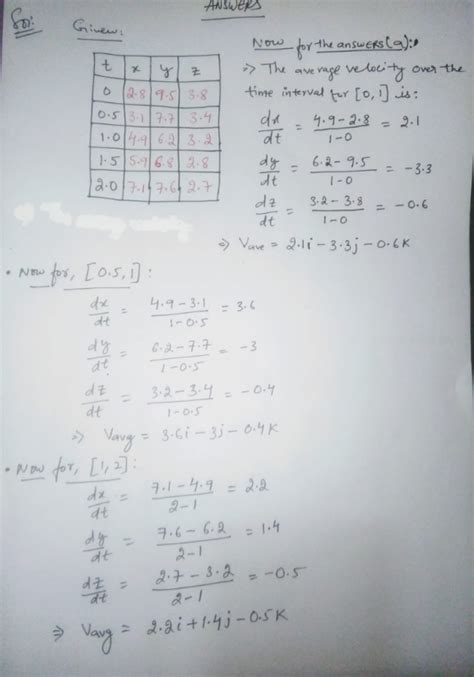 ANSWERS
Sol:
Given:
t x y z
0 2.8 9.5 3.8
0.5 3.1 7.7 3.4
1.0 4.9 6.2 3.2
1.5 5.9 6.8 2.8
2.0 7.1 7.6 2.7
Now for the answers (a):
⇒ The average velocity over the
time interval for [0,1] is:
dx/dt = 4.9-2.8/1-0 = 2.1
dy/dt = 6.2-9.5/1-0 = -3.3
dz/dt = 3.2-3.8/1-0 = -0.6
⇒ Vave = 2.1i-3.3j-0.6K
• Now for, [0.5,1]:
dx/dt = 4.9-3.1/1-0.5 = 3.6
dy/dt = 6.2-7.7/1-0.5 = -3
dz/dt = 3.2-3.4/1-0.5 = -0.4
⇒ Vavg = 3.6i-3j-0.4K
• Now for, [1,2]:
dx/dt = 7.1-4.9/2-1 = 2.2
dy/dt = 7.6-6.2/2-1 = 1.4
dz/dt = 2.7-3.2/2-1 = -0.5
⇒ Vavg = 2.2i+1.4j-0.5K